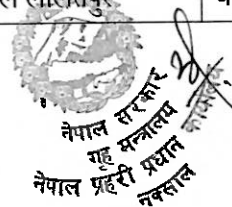 ललितपुर
नेपाल सरकार
गृह मन्त्रालय
नेपाल प्रहरी प्रधान
कार्यालय
नक्साल